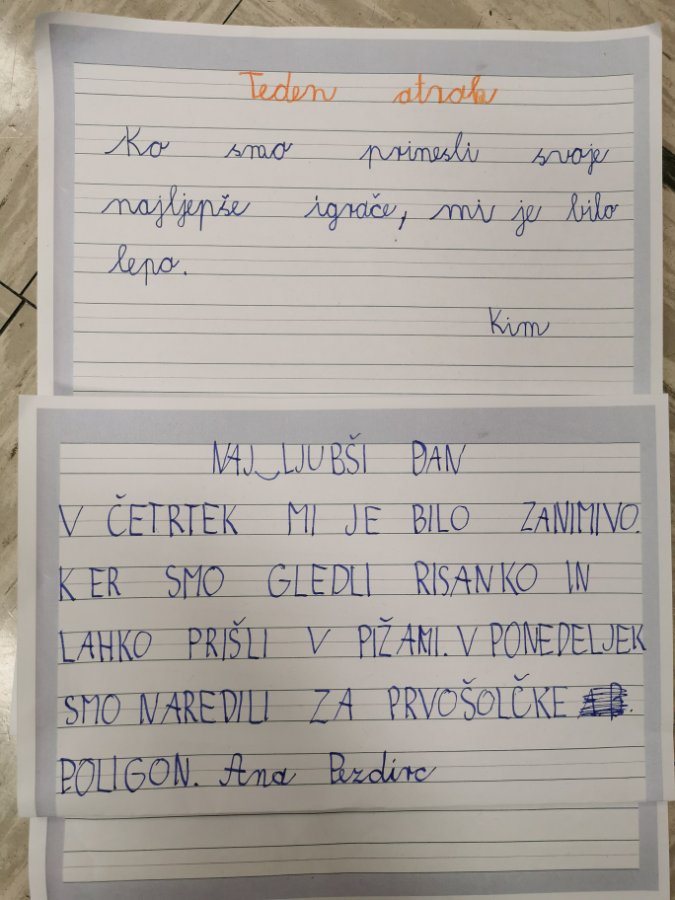 Teden otrok
Ko smo prinesli svoje
najljepše igrače, mi je bilo
lepo.
Kim
NAJ‿LJUBŠI DAN
V ČETRTEK MI JE BILO ZANIMIVO.
KER SMO GLEDLI RISANKO IN
LAHKO PRIŠLI V PIŽAMI. V PONEDELJEK
SMO NAREDILI ZA PRVOŠOLČKE
POLIGON. Ana Pezdirc